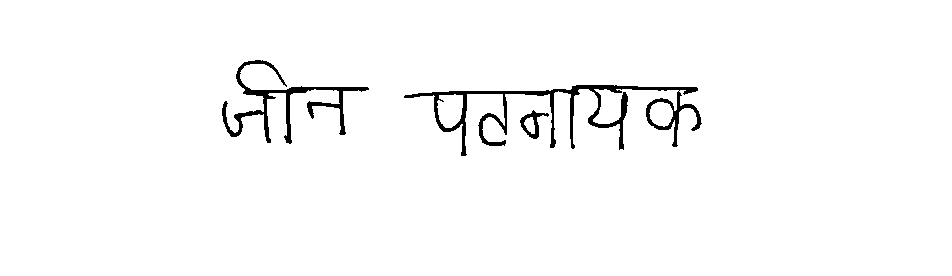 जीन पटनायक